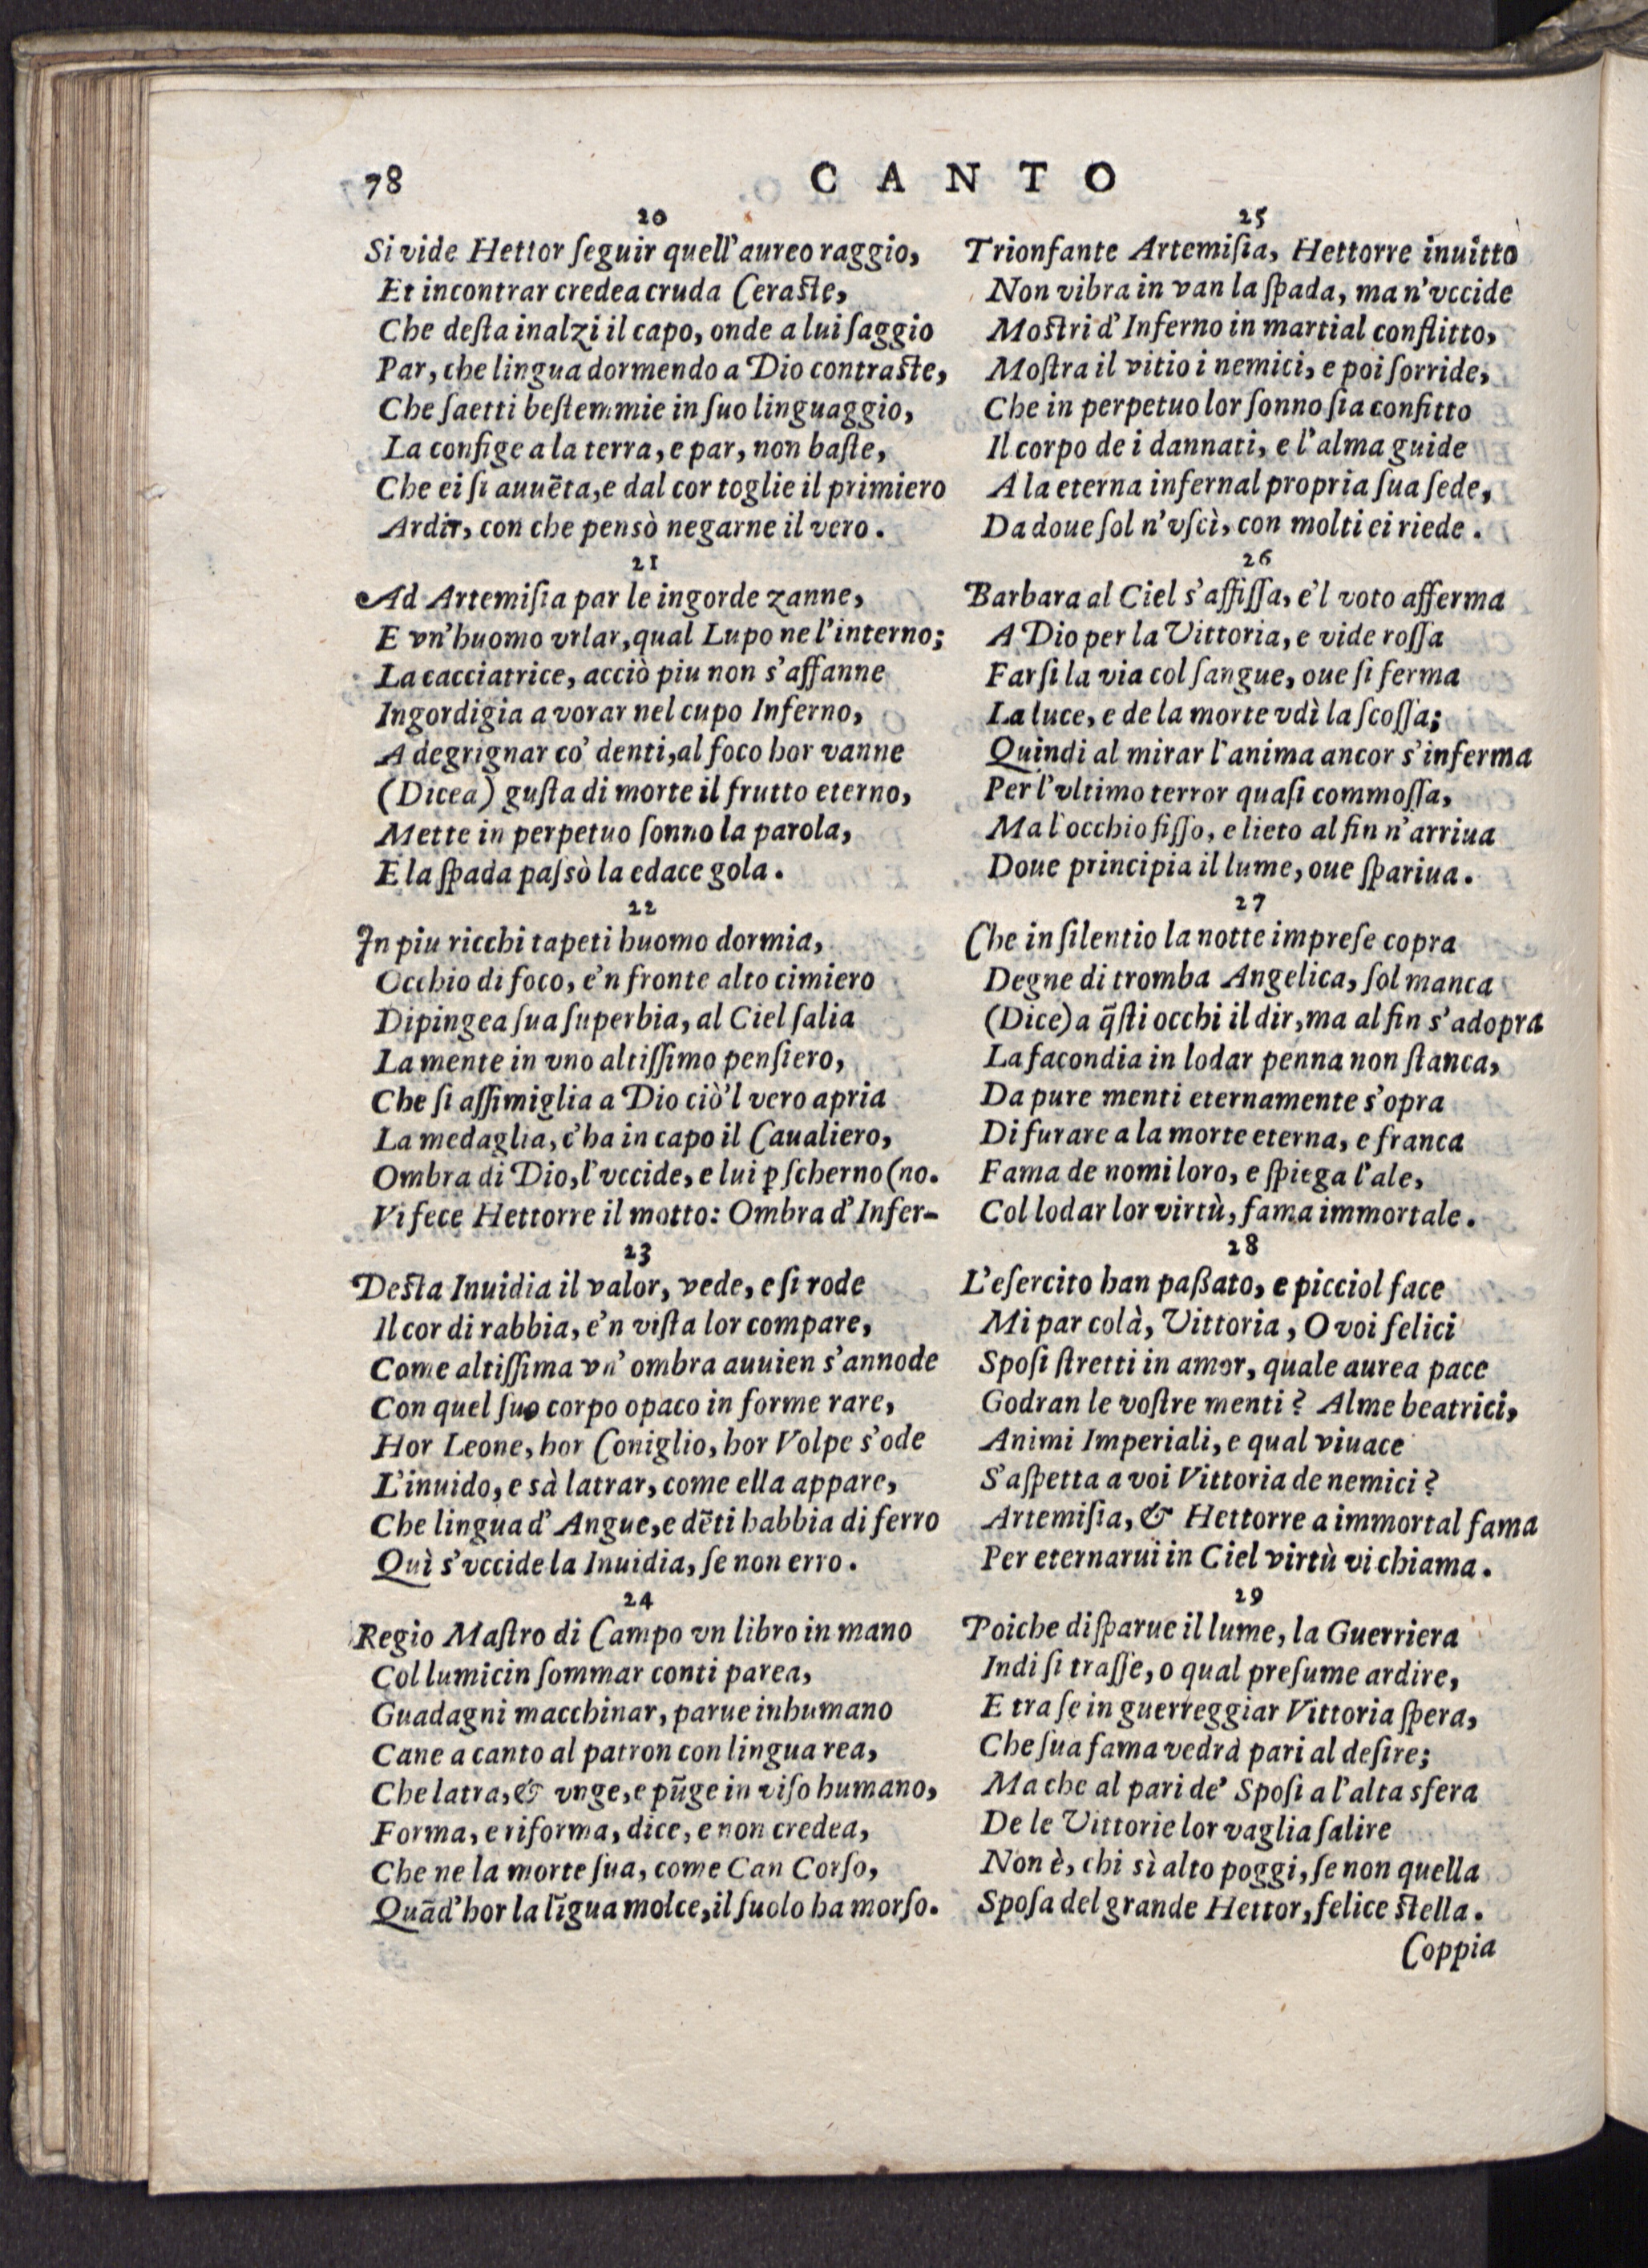 78
CANTO
20
Si vide Hettor ſeguir quell' aureo raggio,
Et incontrar credea cruda Ceraſte,
Che deſta inalzi il capo, onde a lui ſaggio
Par, che lingua dormendo a Dio contraſte,
Che ſaetti beſtemmie in ſuo linguaggio,
La confige a la terra, e par, non baſte,
Che ei ſi auuẽta, e dal cor toglie il primiero
Ardir, con che pensò negarne il vero.
21
Ad Artemiſia par le ingorde zanne,
E vn' huomo vrlar, qual Lupo ne l'interno;
La cacciatrice, acciò piu non s'affanne
Ingordigia a vorar nel cupo Inferno,
A degrignar co' denti, al foco hor vanne
(Dicea) guſta di morte il frutto eterno,
Mette in perpetuo ſonno la parola,
E la ſpada paſsò la edace gola.
22
In piu ricchi tapeti huomo dormia,
Occhio di foco, e'n fronte alto cimiero
Dipingea ſua ſuperbia, al Ciel ſalia
La mente in vno altiſſimo penſiero,
Che ſi aſſimiglia a Dio ciò'l vero apria
La medaglia, c'ha in capo il Caualiero,
Ombra di Dio, l'vccide, e lui ꝑ ſcherno (no.
Vi fece Hettorre il motto: Ombra d'Infer-
23
Deſta Inuidia il valor, vede, e ſi rode
Il cor di rabbia, e'n viſta lor compare,
Come altiſſima vn' ombra auuien s'annode
Con quel ſuo corpo opaco in forme rare,
Hor Leone, hor Coniglio, hor Volpe s'ode
L'inuido, e sà latrar, come ella appare,
Che lingua d' Angue, e dẽti habbia di ferro
Quì s'vccide la Inuidia, ſe non erro.
24
Regio Maſtro di Campo vn libro in mano
Col lumicin ſommar conti parea,
Guadagni macchinar, parue inhumano
Cane a canto al patron con lingua rea,
Che latra, & vnge, e pũge in viſo humano,
Forma, e riforma, dice, e non credea,
Che ne la morte ſua, come Can Corſo,
Quãd'hor la lĩgua molce, il ſuolo ha morſo.
25
Trionfante Artemiſia, Hettorre inuitto
Non vibra in van la ſpada, ma n'vccide
Moſtri d'Inferno in martial conflitto,
Moſtra il vitio i nemici, e poi ſorride,
Che in perpetuo lor ſonno ſia confitto
Il corpo de i dannati, e l'alma guide
A la eterna infernal propria ſua ſede,
Da doue ſol n'vſcì, con molti ei riede.
26
Barbara al Ciel s'affiſſa, e'l voto afferma
A Dio per la Vittoria, e vide roſſa
Farſi la via col ſangue, oue ſi ferma
La luce, e de la morte vdì la ſcoſſa;
Quindi al mirar l'anima ancor s'inferma
Per l'vltimo terror quaſi commoſſa,
Ma l'occhio fiſſo, e lieto al fin n'arriua
Doue principia il lume, oue ſpariua.
27
Che in ſilentio la notte impreſe copra
Degne di tromba Angelica, ſol manca
(Dice) a q̃ſti occhi il dir, ma al fin s'adopra
La facondia in lodar penna non ſtanca,
Da pure menti eternamente s'opra
Di furare a la morte eterna, e franca
Fama de nomi loro, e ſpiega l'ale,
Col lodar lor virtù, fama immortale.
28
L'eſercito han paßato, e picciol face
Mi par colà, Vittoria, O voi felici
Spoſi ſtretti in amor, quale aurea pace
Godran le voſtre menti? Alme beatrici,
Animi Imperiali, e qual viuace
S'aſpetta a voi Vittoria de nemici?
Artemiſia, & Hettorre a immortal fama
Per eternarui in Ciel virtù vi chiama.
29
Poiche diſparue il lume, la Guerriera
Indi ſi traſſe, o qual preſume ardire,
E tra ſe in guerreggiar Vittoria ſpera,
Che ſua fama vedrà pari al deſire;
Ma che al pari de' Spoſi a l'alta sfera
De le Vittorie lor vaglia ſalire
Non è, chi sì alto poggi, ſe non quella
Spoſa del grande Hettor, felice ſtella.
Coppia